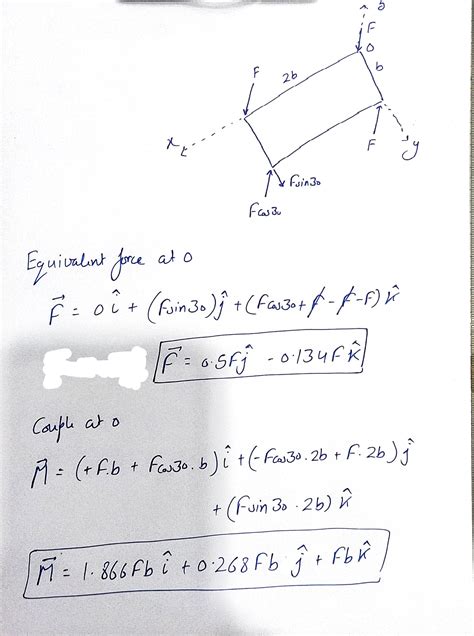 b
F
O
F
2b
b
x
F
y
Fsin30
Fcos30
Equivalent force at O
F⃗ = 0 î + (Fsin30) ĵ + (Fcos30 + F - F - F) k̂
F⃗ = 0.5F ĵ - 0.134 F k̂
Couple at O
M⃗ = (+F.b + Fcos30.b) î + (-Fcos30.2b + F.2b) ĵ
+ (Fsin30.2b) k̂
M⃗ = 1.866Fb î + 0.268Fb ĵ + Fb k̂